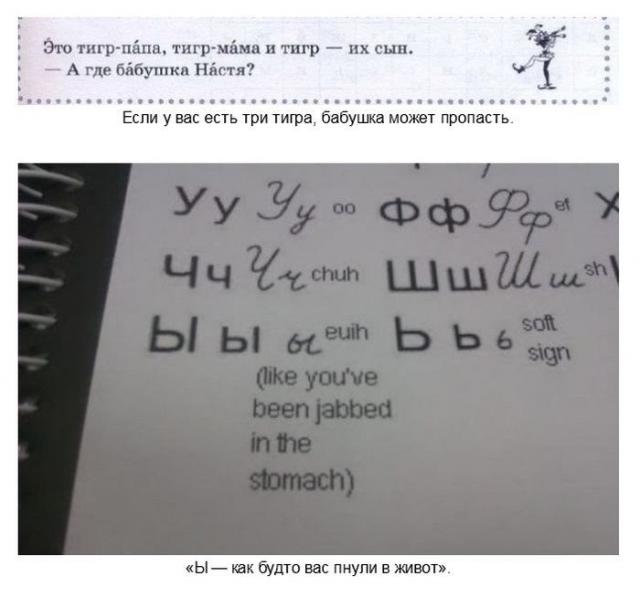 Это тигр-пáпа, тигр-мáма и тигр — их сын.
— А где бáбушка Нáстя?
Если у вас есть три тигра, бабушка может пропасть.
Уу Уу oo Фф Фф ef Х
Чч Чч chuh Шш Шш sh
Ы ы ы euih Ь ь ь soft sign
(like you've
been jabbed
in the
stomach)
«Ы — как будто вас пнули в живот».